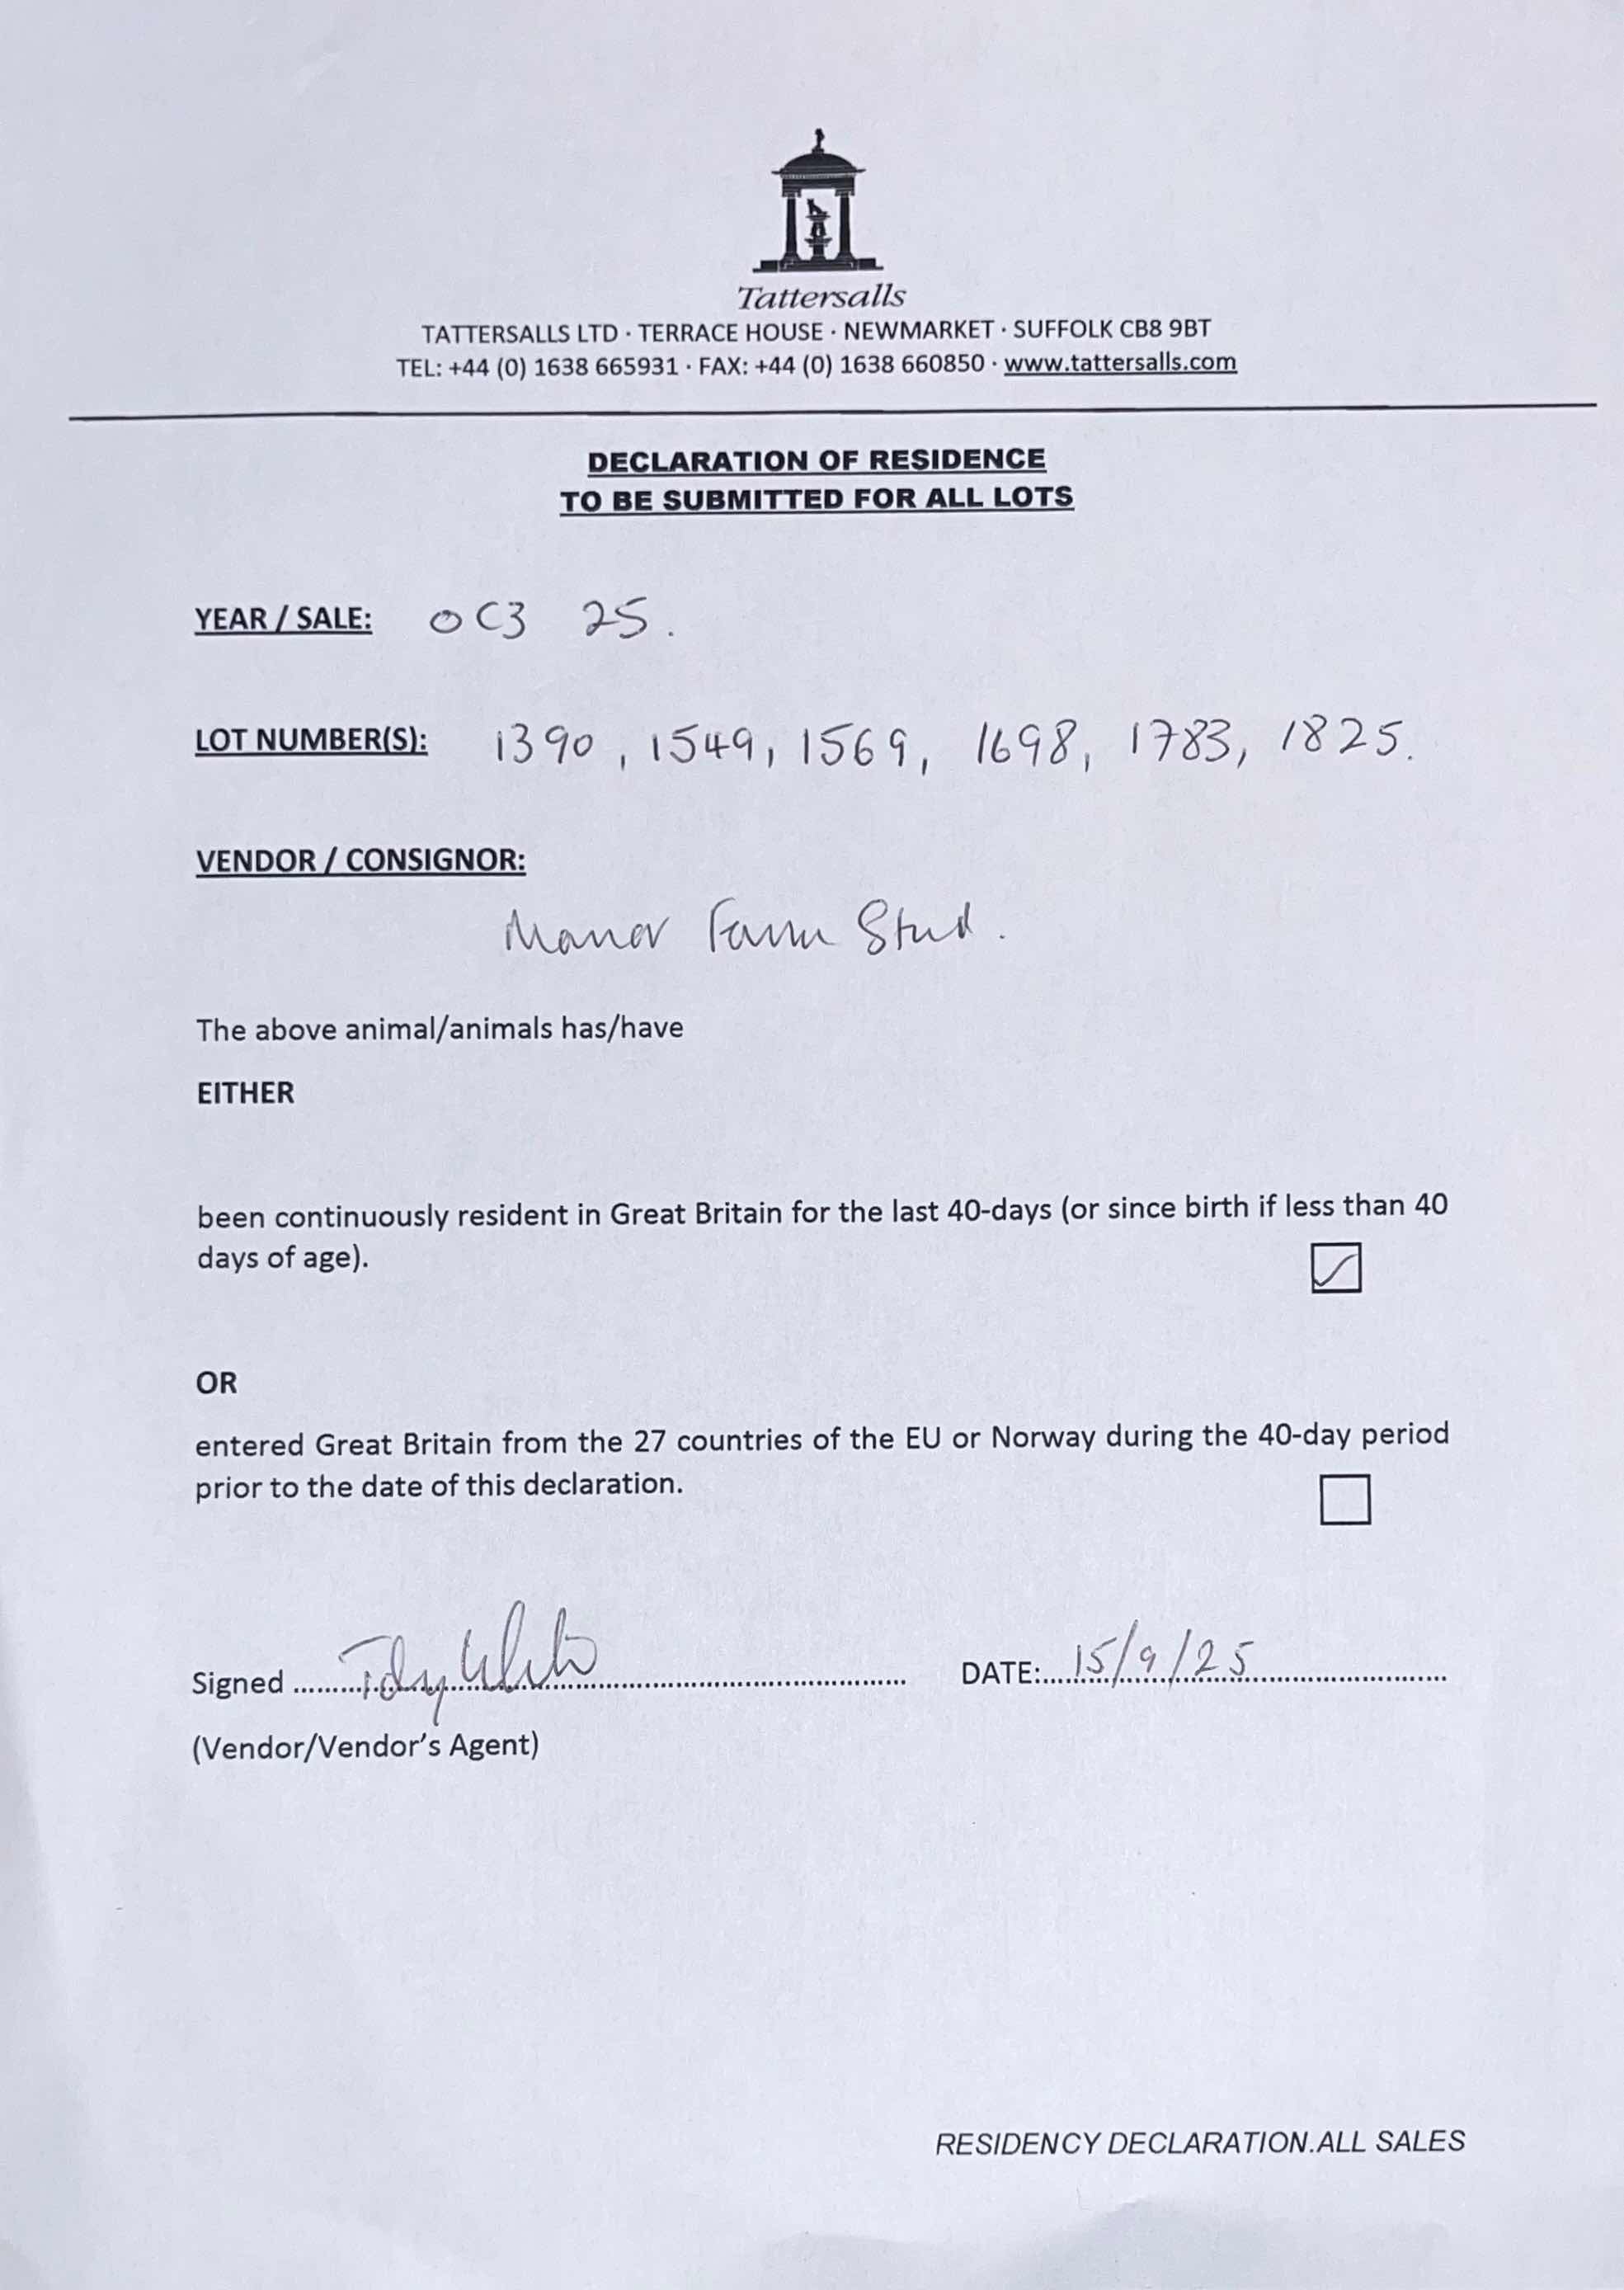 Tattersalls
TATTERSALLS LTD · TERRACE HOUSE · NEWMARKET · SUFFOLK CB8 9BT
TEL: +44 (0) 1638 665931 · FAX: +44 (0) 1638 660850 · www.tattersalls.com
DECLARATION OF RESIDENCE
TO BE SUBMITTED FOR ALL LOTS
YEAR / SALE: OC3 25.
LOT NUMBER(S): 1390, 1549, 1569, 1698, 1783, 1825.
VENDOR / CONSIGNOR:
Manor Farm Stud.
The above animal/animals has/have
EITHER
been continuously resident in Great Britain for the last 40-days (or since birth if less than 40
days of age).
OR
entered Great Britain from the 27 countries of the EU or Norway during the 40-day period
prior to the date of this declaration.
Signed .......... DATE: 15/9/25
(Vendor/Vendor's Agent)
RESIDENCY DECLARATION.ALL SALES